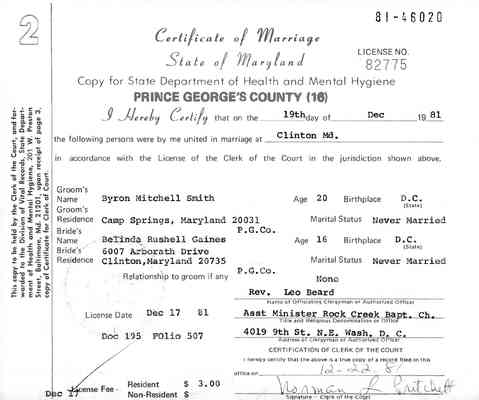 2
81-46020
Certificate of Marriage
State of Maryland
LICENSE NO.
82775
Copy for State Department of Health and Mental Hygiene
PRINCE GEORGE'S COUNTY (16)
I Hereby Certify that on the 19th day of Dec 1981
the following persons were by me united in marriage at Clinton Md.
in accordance with the License of the Clerk of the Court in the jurisdiction shown above.
This copy to be held by the Clerk of the Court, and for-
warded to the Division of Vital Records, State Depart-
ment of Health and Mental Hygiene, 201 W. Preston
Street, Baltimore, Md. 21201, upon receipt of page 3,
copy of Certificate for Clerk of Court.
Groom's
Name Byron Mitchell Smith Age 20 Birthplace D.C.
(State)
Groom's
Residence Camp Springs, Maryland 20031 Marital Status Never Married
P.G.Co.
Bride's
Name Belinda Rushell Gaines Age 16 Birthplace D.C.
(State)
Bride's 6007 Arborath Drive
Residence Clinton, Maryland 20735 Marital Status Never Married
P.G.Co.
Relationship to groom if any None
Rev. Leo Beard
Name of Officiating Clergyman or Authorized Officer
License Date Dec 17 81 Asst Minister Rock Creek Bapt. Ch.
Title and Religious Denomination or Office
Doc 195 FOlio 507 4019 9th St. N.E. Wash, D. C.
Address of Clergyman or Authorized Officer
CERTIFICATION OF CLERK OF THE COURT
I hereby certify that the above is a true copy of a record filed in this
office on 12-22-81
Dec 17
License Fee - Resident $ 3.00
Non-Resident $
Norman L Pritchett
Signature - Clerk of the Court